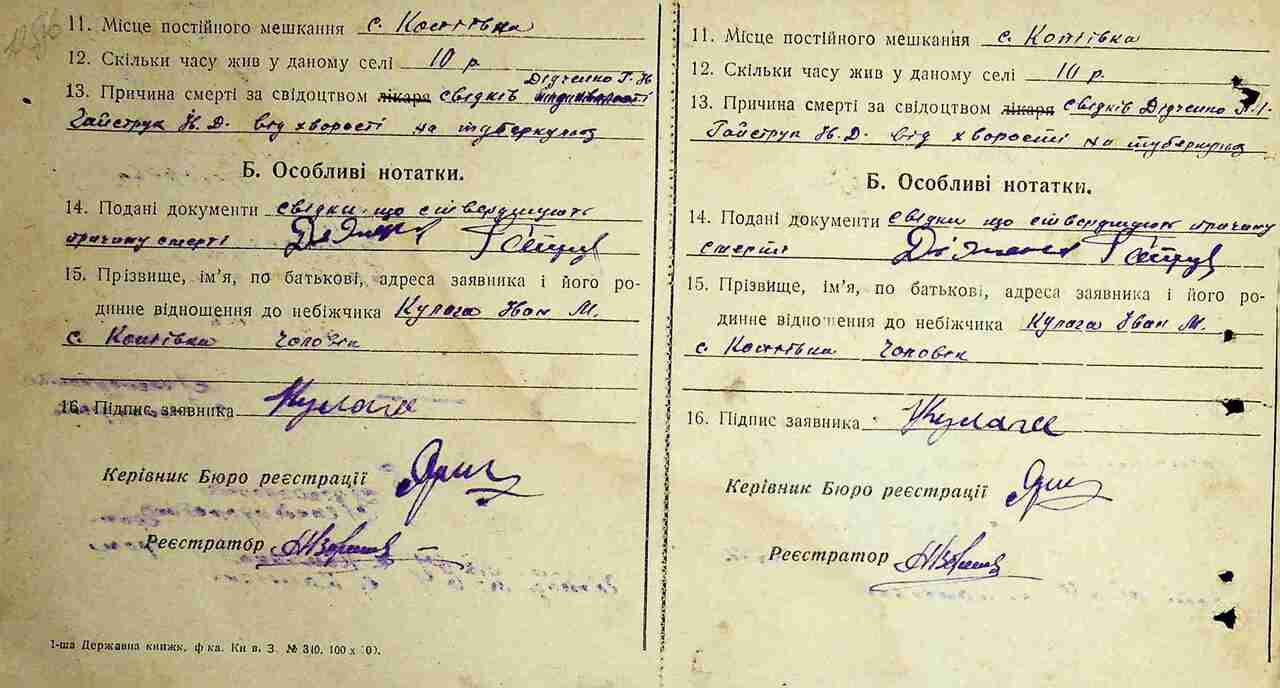 11. Місце постійного мешкання с. Коптівка
12. Скільки часу жив у даному селі 10 р.
Дідченко Г. И.
13. Причина смерті за свідоцтвом лікаря свідків
Гайструк И. Д. від хворості на туберкульоз
Б. Особливі нотатки.
14. Подані документи свідки що стверджують
причину смерті
15. Прізвище, ім’я, по батькові, адреса заявника і його ро-
динне відношення до небіжчика Кулага Иван М.
с. Коптівка чоловек
16. Підпис заявника Кулага
Керівник Бюро реєстрації
Реєстратор
1-ша Державна книжк. ф-ка. Київ. З. № 340. 100 х 00.
11. Місце постійного мешкання с. Коптівка
12. Скільки часу жив у даному селі 10 р.
13. Причина смерті за свідоцтвом лікаря свідків Дідченко Г. І.
Гайструк И. Д. від хворості на туберкульоз
Б. Особливі нотатки.
14. Подані документи свідки що стверджують причину
смерті
15. Прізвище, ім’я, по батькові, адреса заявника і його ро-
динне відношення до небіжчика Кулага Иван М.
с. Коптівка чоловек
16. Підпис заявника Кулага
Керівник Бюро реєстрації
Реєстратор